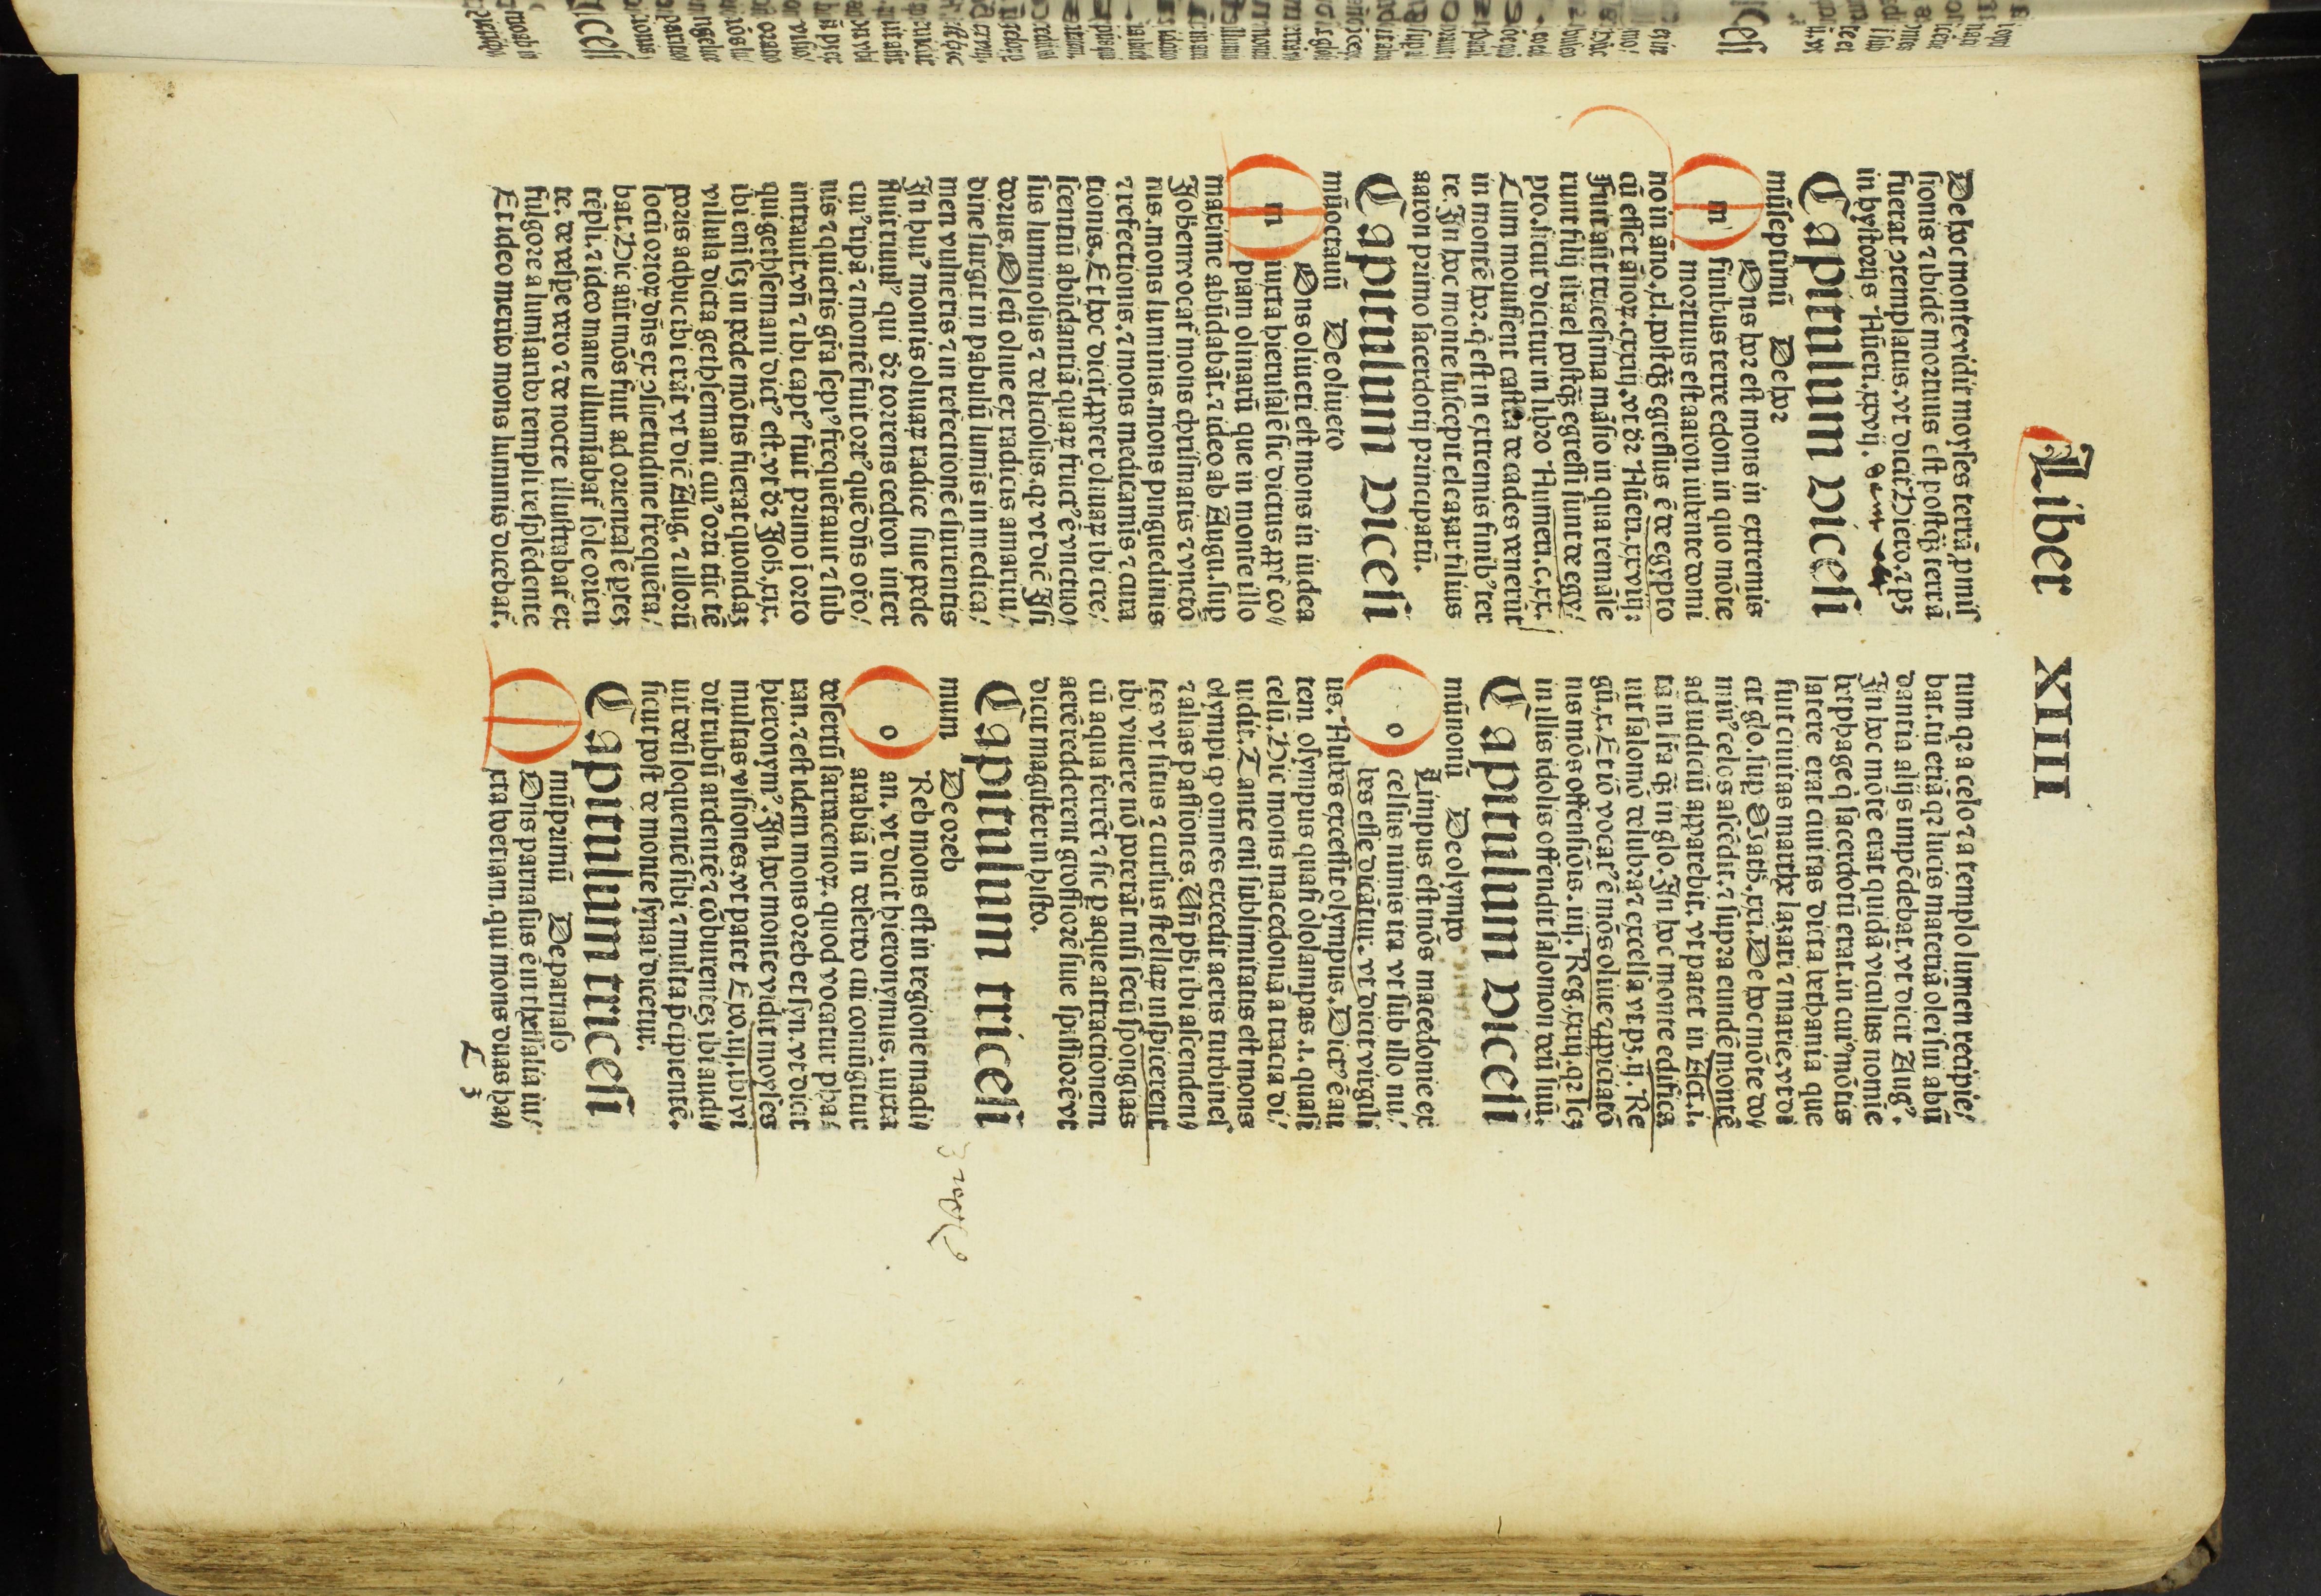 Liber XIIII
De hoc monte vidit moyses terrã ꝓmiſ
ſionis ⁊ ibidẽ mortuus eſt poſtq̃ꝫ terrã
fuerat ↄtemplatus. vt dicit Hiero. ⁊ pꝫ
in hyſtorijs Nũeri. xxvij.
Capitulum viceſi
müſeptimũ De hor
m
Ons hor eſt mons in extremis
finibus terre edom in quo mõte
mortuus eſt aaron iubente domi
no in ãno. xl. poſtq̃ꝫ egreſſus ẽ de egypto
cũ eſſet ãnoꝝ. cxxiij. vt dr̃ Nũeri. xxviij:
Fuit aũt triceſima mãſio in qua remãſe
runt filij iſrael poſtq̃ꝫ egreſſi ſunt de egy/
pto. ſicut dicitur in libro Numeri. c. xx.
Cum mouiſſent caſtra de cades venerũt
in montẽ hor. q̃ eſt in extremis finib' ter
re. In hoc monte ſuſcepit eleazar filius
aaron primo ſacerdotij principatũ.
Capitulum viceſi
müoctauũ De oliueto
m
Ons oliueti eſt mons in iudea
iuxta hieruſalẽ ſic dictus ꝓpt̃ co/
piam oliuarũ que in monte illo
maxime abũdabãt. ⁊ ideo ab Augu. ſuꝑ
Joh̃em vocat̃ mons chriſmatis ⁊ vnctio
nis. mons luminis. mons pinguedinis
⁊ refectionis. ⁊ mons medicaminis ⁊ cura
tionis. Et hoc dicit. ꝓpter oliuaꝝ ibi cre/
ſcentiũ abũdantiã quaꝝ fruct' ẽ vnctuo/
ſus luminoſus ⁊ delicioſus. qꝛ vt dic̃ Iſi
dorus. Oleũ oliue ex radicis amaritu/
dine ſurgit in pabulũ luminis in medica/
men vulneris ⁊ in refectionẽ eſurientis
In hui' montis oliuaꝝ radice ſiue pede
fluit riuul' qui dr̃ torrens cedron inter
cui' ripã ⁊ montẽ fuit ort' quẽ dñs oĩo/
nis ⁊ quietis grã ſepi' frequẽtauit ⁊ ſub
intrauit. vñ ⁊ ibi capt' fuit primo i orto
qui gethſemani dict' eſt. vt dr̃ Joh̃. xix.
ibi eni ſcꝫ in pede mõtis fuerat quondaꝫ
villula dicta gethſemani cui' orti tũc tẽ
poris adhuc ibi erãt vt dic̃ Aug. ⁊ illorũ
locũ ortoꝝ dñs ex ↄſuetudine frequẽta/
bat. Hic aũt mõs fuit ad orientalẽ ꝑteꝫ
tẽpli. ⁊ ideo mane illumĩabat̃ ſole orien
te. de veſpe vero ⁊ de nocte illuſtrabat̃ ex
fulgore a lumĩaribꝰ templi reſplẽdente
Et ideo merito mons luminis dicebat̃.
tum qꝛ a celo ⁊ a templo lumen recipie/
bat. tũ etiã qꝛ lucis materiã olei ſui abũ
dantia alijs impẽdebat. vt dicit Aug'.
In hoc mõte erat quidã viculus nomĩe
bethphage q̃ ſacerdotũ erat. in cui' mõtis
latere erat ciuitas dicta bethania que
fuit ciuitas marthe lazari ⁊ marie. vt di
cit glo. ſuꝑ Math̃. xxi. De hoc mõte do/
min' celos aſcẽdit. ⁊ ſupra eundẽ montẽ
ad iudiciũ apparebit. vt patet in Act. i.
In hoc monte edifica
uit ſalomõ delubra ⁊ excelſa vt pꝫ. ij. Re
gũ. x. Et iõ vocat̃ ẽ mõs oliue ⁊ ꝓpriatõ
nis mõs offenſiõis. iiij. Reg. xxiij. qꝛ ſcꝫ
in illis idolis offendit ſalomon deũ ſuũ.
Capitulum viceſi
münonũ De olympo
o
Limpus eſt mõs macedonie ex
celſus nimis ita vt ſub illo nu/
bes eſſe dicãtur. vt dicit virgili
us. Nubes exceſſit olympus. Dict' ẽ au
tem olympus quaſi ololampas. i. quaſi
celũ. Hic mons macedoniã a tracia di/
uidit. Tante eni ſublimitatis eſt mons
olympi ꝙ omnes excedit aeris turbineſ
⁊ alias paſſiones. Vñ ph̃i ibi aſcenden/
tes vt ſitus ⁊ curſus ſtellaꝝ inſpicerent
ibi viuere nõ poterãt niſi ſecũ ſpongias
cũ aqua ferrẽt ⁊ ſic ꝑ aque attractionem
aerẽ redderent groſſiorẽ ſiue ſpiſſiorẽ vt
dicit magiſter in hiſto.
Capitulum triceſi
mum De oreb
o
Reb mons eſt in regione madi/
an. vt dicit hieronymus. iuxta
arabiã in deſerto cui coniũgitur
deſertũ ſarracenoꝝ. quod vocatur pha/
ran. ⁊ eſt idem mons oreb et ſyn. vt dicit
hieronym'. In hoc monte vidit moyſes
multas viſiones. vt patet Exo. iij. ibi vi
dit rubũ ardentẽ ⁊ cõburentẽ ⁊ ibi audi/
uit deũ loquentẽ ſibi ⁊ multa ꝑcipientẽ.
ſicut poſt de monte ſynai dicetur.
Capitulum triceſi
müprimũ De parnaſo
Ons parnaſus ẽ in theſſalia iu/
xta boetiam. qui mons duas ha/
L 3